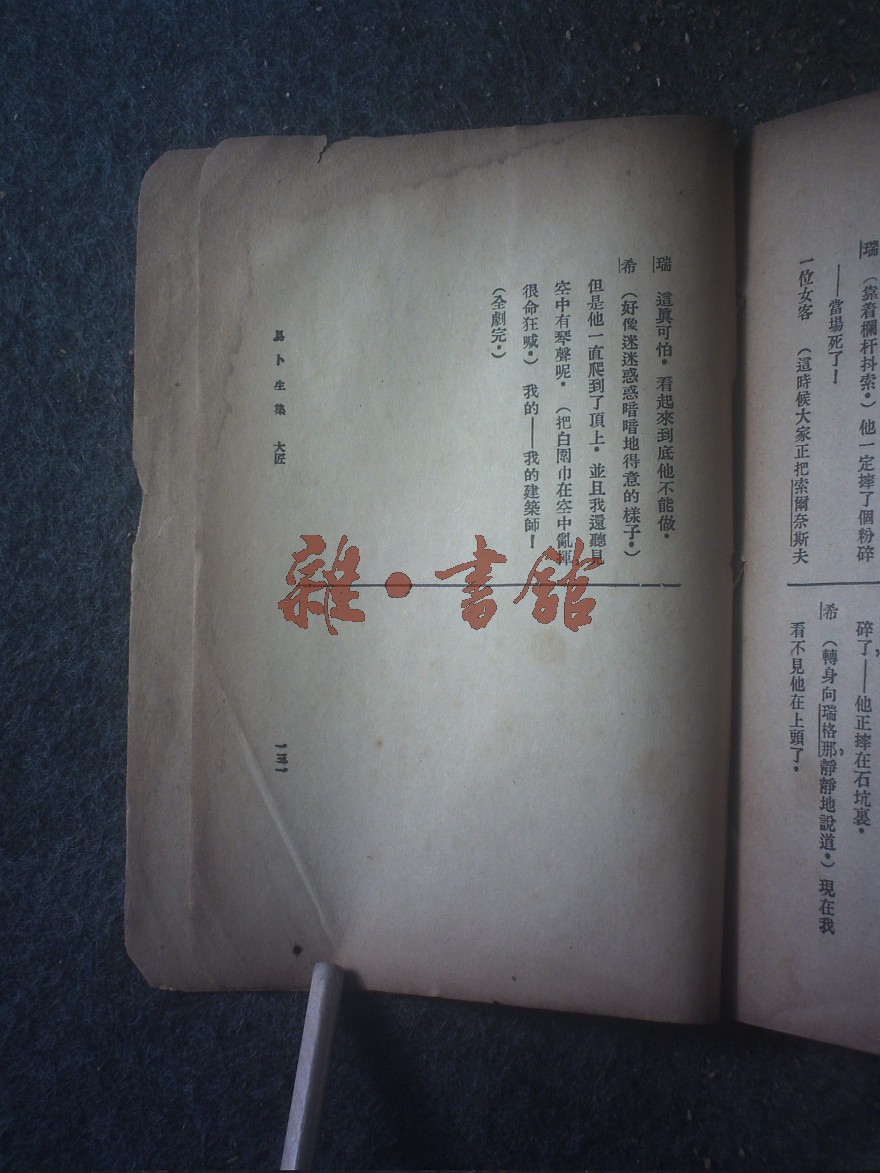 瑞　（靠着欄杆抖索・）他一定摔了個粉碎
——當場死了！
一位女客　（這時候大家正把索爾奈斯夫
碎了，——他正摔在石坑裏・
希　（轉身向瑞格那，靜靜地說道・）現在我
看不見他在上頭了・
瑞　這眞可怕・看起來到底他不能做・
希　（好像迷迷惑惑暗暗地得意的樣子・）
但是他一直爬到了頂上・並且我還聽見
空中有琴聲呢・（把白圍巾在空中亂揮
很命狂喊・）我的——我的建築師！
（全劇完・）
易卜生集　大匠
一三一
雜・書館